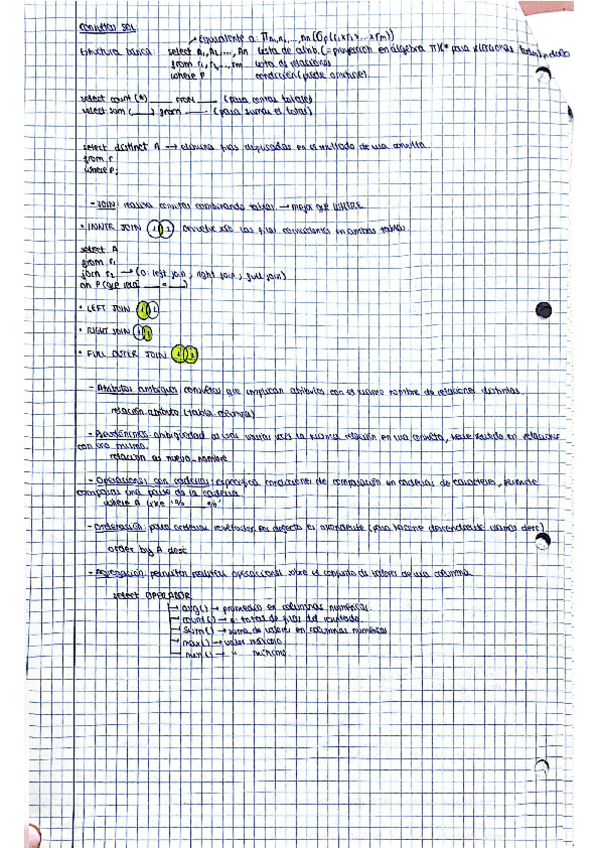 Consultas SQL
Equivalente a: π A₁,A₂,...,An (σp (r₁xr₂x...xrm))
Estructura básica: select A₁, A₂, ..., An lista de atrib. (= proyección en álgebra π) (* para seleccionar todo)
from r₁, r₂, ..., rm lista de relaciones
where P condición (puede omitirse)
select count (*) ____ from ____ (para contar totales)
select sum (____) from ____ (para sumas el total)
select distinct A → elimina filas duplicadas en el resultado de una consulta.
from r
where P;
- JOIN: realiza consultas combinando tablas. → mejor que WHERE
• INNER JOIN 1 2 devuelve sólo las filas coincidentes en ambas tablas.
select A
from r₁
join r₂ → (o: left join, right join, full join)
on P (que sea: ___ = ___)
• LEFT JOIN 1 2
• RIGHT JOIN 1 2
• FULL OUTER JOIN 1 2
- Atributos ambiguos: consultas que implican atributos con el mismo nombre de relaciones distintas.
relación.atributo (tabla.columna)
- ambigüedad al usar varias veces la misma relación en una consulta, en relaciones
con uno mismo.
relación as nuevo_nombre
- Operaciones con cadenas: especifica condiciones de comparación en cadenas de caracteres, permite
comparar una parte de la cadena
where A like '% ___ %'
- Ordenación: para ordenar resultados. Por defecto es ascendente (para hacerlo descendente usamos desc)
order by A desc
- Agregación: permiten realizar operaciones sobre el conjunto de valores de una columna
select OPERADOR
avg() → promedio en columnas numéricas.
count() → nº total de filas del resultado.
sum() → suma de valores en columnas numéricas
max() → valor máximo
min() → " mínimo.